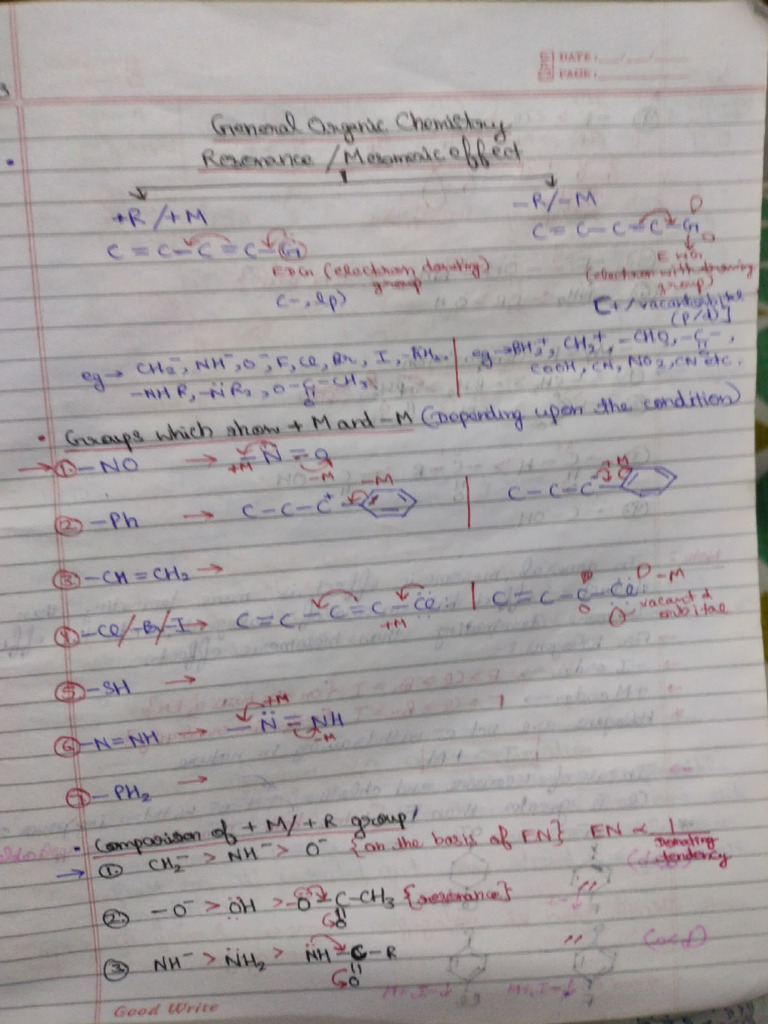 DATE:
PAGE:
General Organic Chemistry
Resonance / Mesomeric effect
+R/+M
-R/-M
C = C - C = C - G
C = C - C = C - G
EDG (electron donating group)
EWG (electron withdrawing group)
(-, lp)
[+ / vacant orbital (p/d)]
eg → CH2⁻, NH⁻, O⁻, F, Cl, Br, I, -NH2
-NHR, -NR2, O-C-CH3
O
eg → BH2, CH2⁺, -CHO, -C-,
O
COOH, CN, NO2, etc.
• Groups which show +M and -M (Depending upon the condition)
→ ① -NO → -N = O
+M -M
② -Ph → C - C - C⁺ - -M
C - C - C⁻ - +M
③ -CH=CH2 →
④ -Cl/-Br/-I → C = C - C = C - Cl:
+M
C = C - C - Cl: -M
vacant d orbital
⑤ -SH →
⑥ -N=NH → -N = NH
+M
-M
⑦ -PH2 →
• Comparison of +M/+R group!
→ ① CH2⁻ > NH⁻ > O⁻ {on the basis of EN} EN ∝ 1
Donating tendency
② -O⁻ > OH > -O-C-CH3 {resonance}
O
③ NH⁻ > NH2 > NH-C-R
O
Good Write